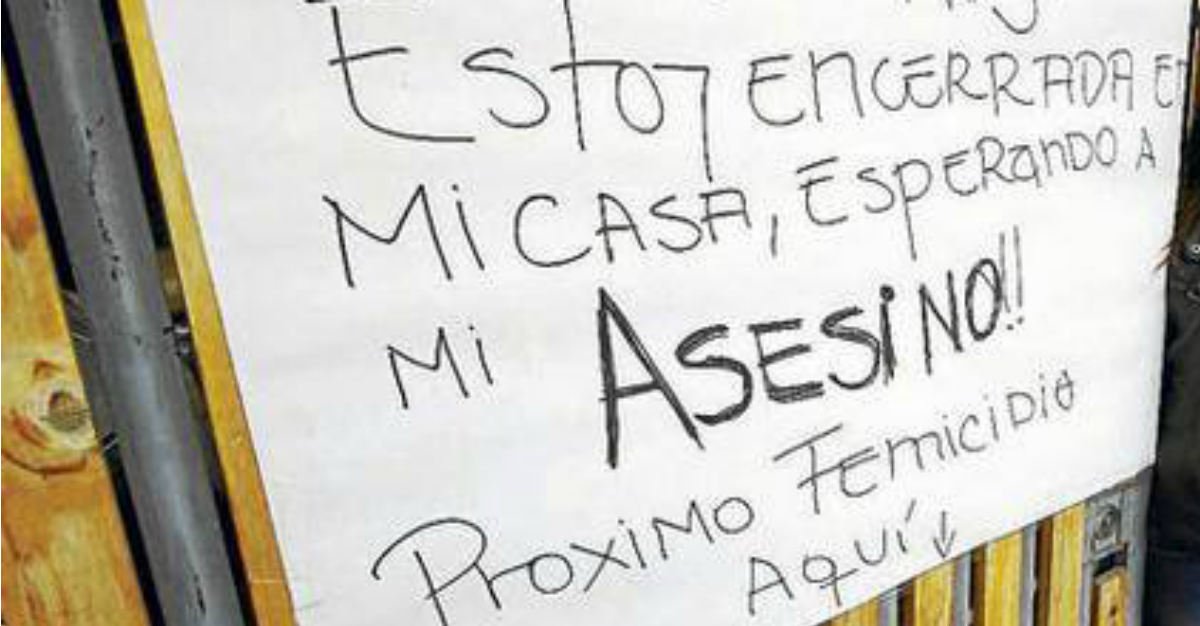 Estoy ENCERRADA EN
Mi CASA, ESPERANDO A
Mi ASESiNO!!
PROXiMO FEMiCiDiO
AQUÍ ↓